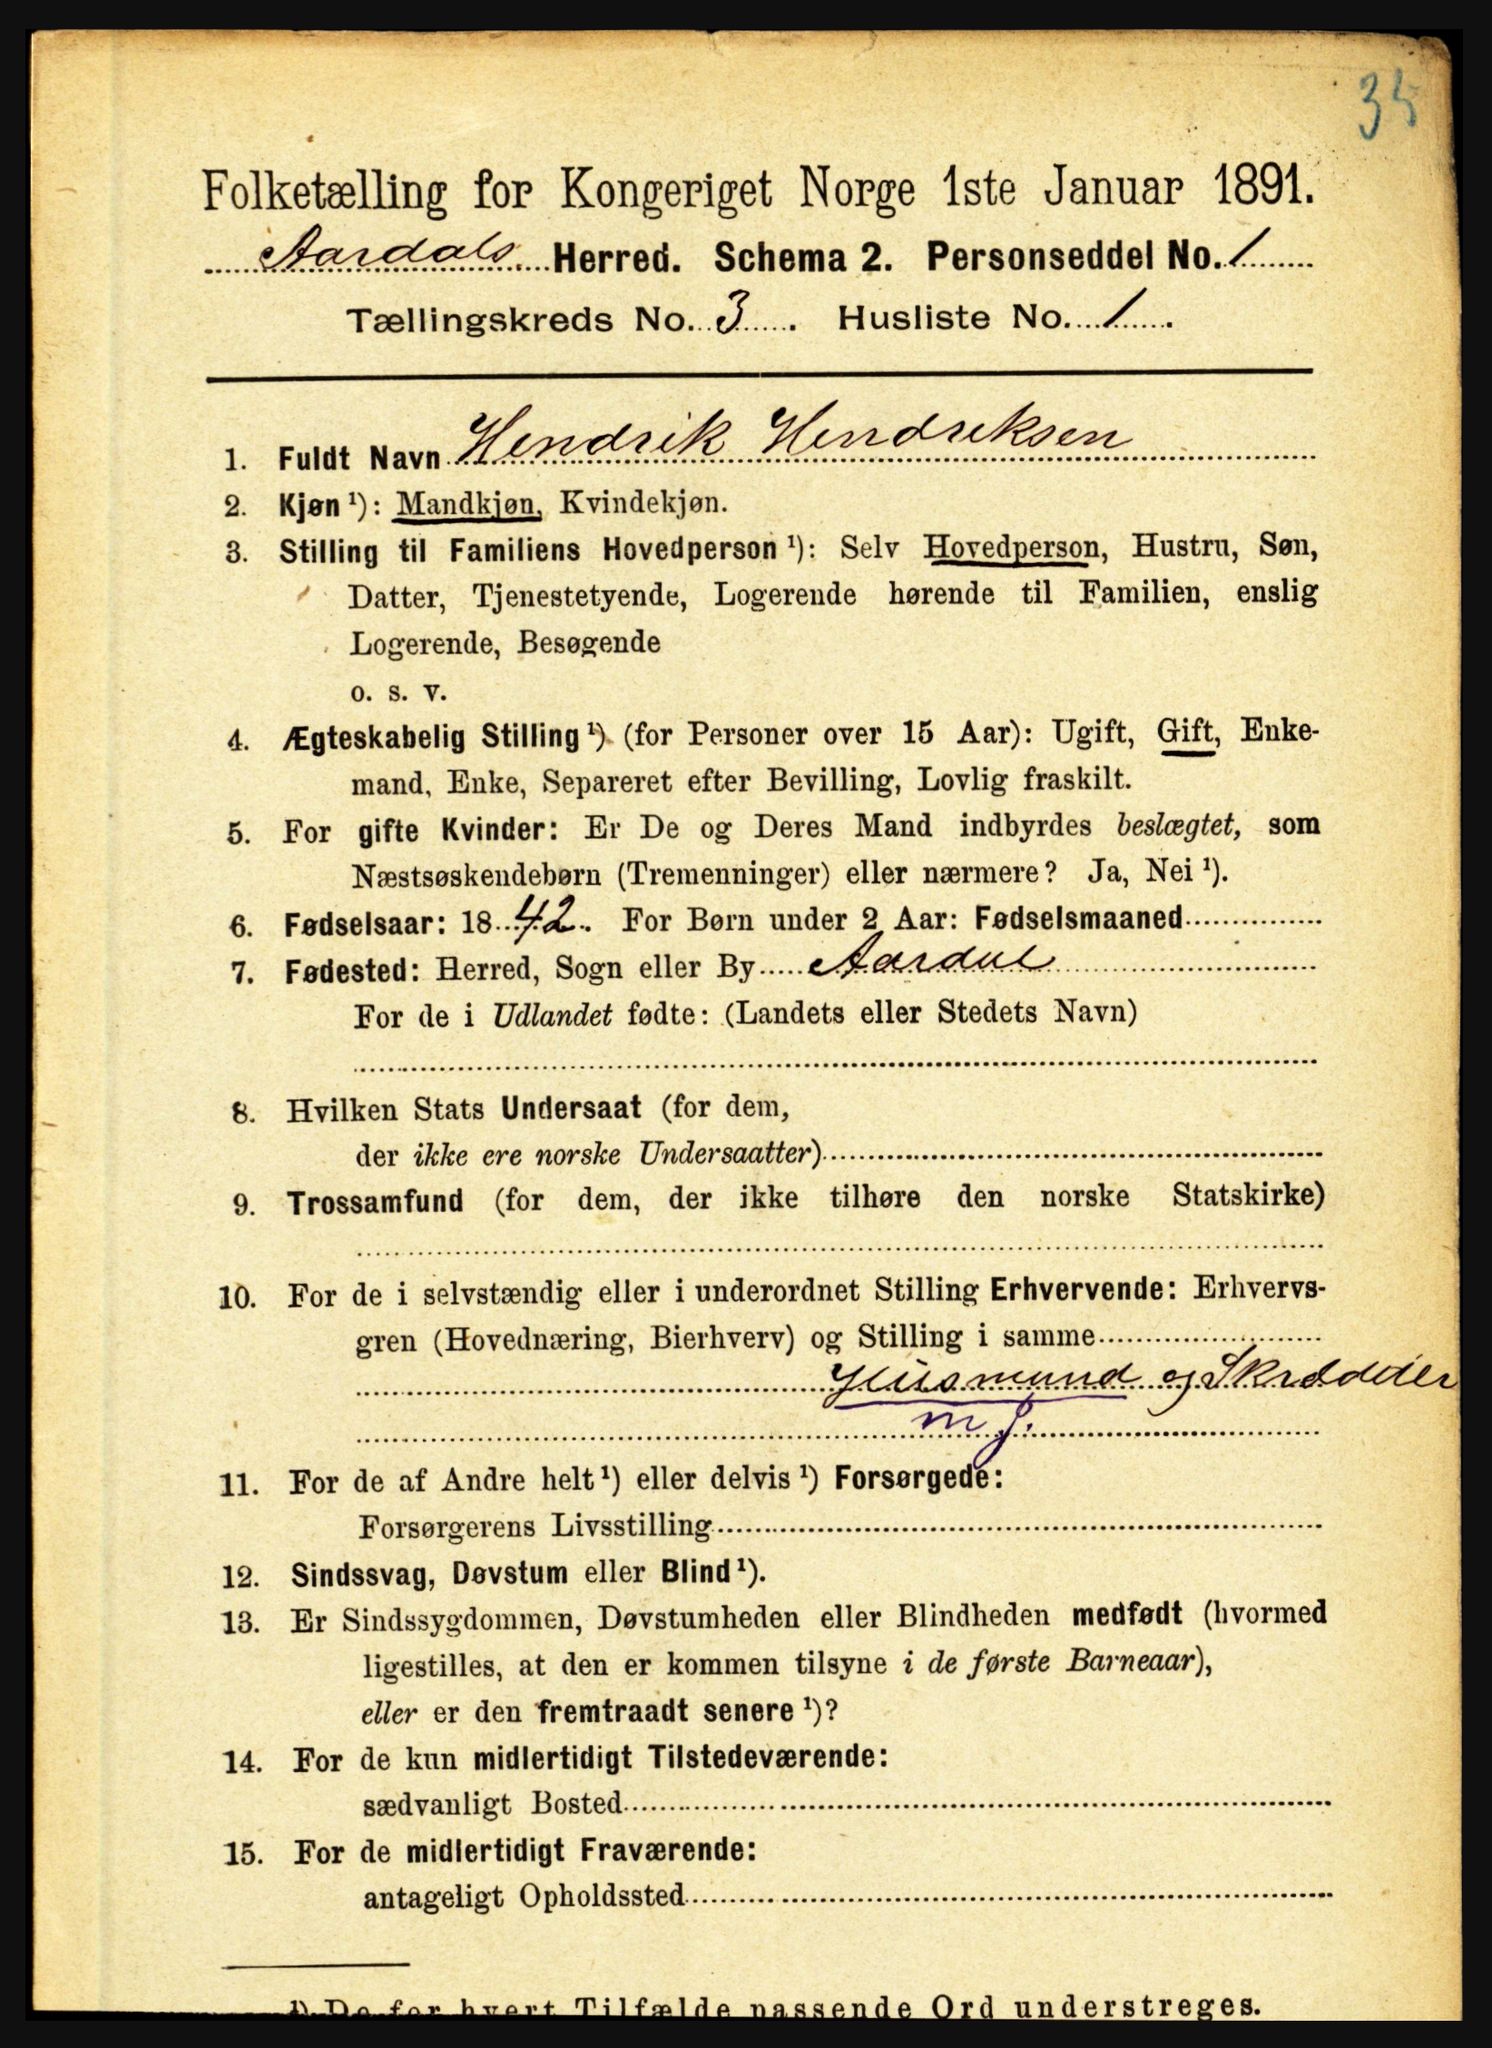 35
Folketælling for Kongeriget Norge 1ste Januar 1891.
Aardals Herred. Schema 2. Personseddel No. 1
Tællingskreds No. 3. Husliste No. 1.
1. Fuldt Navn Hendrik Hendriksen
2. Kjøn ¹): Mandkjøn, Kvindekjøn.
3. Stilling til Familiens Hovedperson ¹): Selv Hovedperson, Hustru, Søn,
Datter, Tjenestetyende, Logerende hørende til Familien, enslig
Logerende, Besøgende
o. s. v.
4. Ægteskabelig Stilling ¹) (for Personer over 15 Aar): Ugift, Gift, Enke-
mand, Enke, Separeret efter Bevilling, Lovlig fraskilt.
5. For gifte Kvinder: Er De og Deres Mand indbyrdes beslægtet, som
Næstsøskendebørn (Tremenninger) eller nærmere? Ja, Nei ¹).
6. Fødselsaar: 1842. For Børn under 2 Aar: Fødselsmaaned
7. Fødested: Herred, Sogn eller By Aardal
For de i Udlandet fødte: (Landets eller Stedets Navn)
8. Hvilken Stats Undersaat (for dem,
der ikke ere norske Undersaatter)
9. Trossamfund (for dem, der ikke tilhøre den norske Statskirke)
10. For de i selvstændig eller i underordnet Stilling Erhvervende: Erhvervs-
gren (Hovednæring, Bierhverv) og Stilling i samme
Husmand og Skrædder
m J.
11. For de af Andre helt ¹) eller delvis ¹) Forsørgede:
Forsørgerens Livsstilling
12. Sindssvag, Døvstum eller Blind ¹).
13. Er Sindssygdommen, Døvstumheden eller Blindheden medfødt (hvormed
ligestilles, at den er kommen tilsyne i de første Barneaar),
eller er den fremtraadt senere ¹)?
14. For de kun midlertidigt Tilstedeværende:
sædvanligt Bosted
15. For de midlertidigt Fraværende:
antageligt Opholdssted
¹) De for hvert Tilfælde passende Ord understreges.